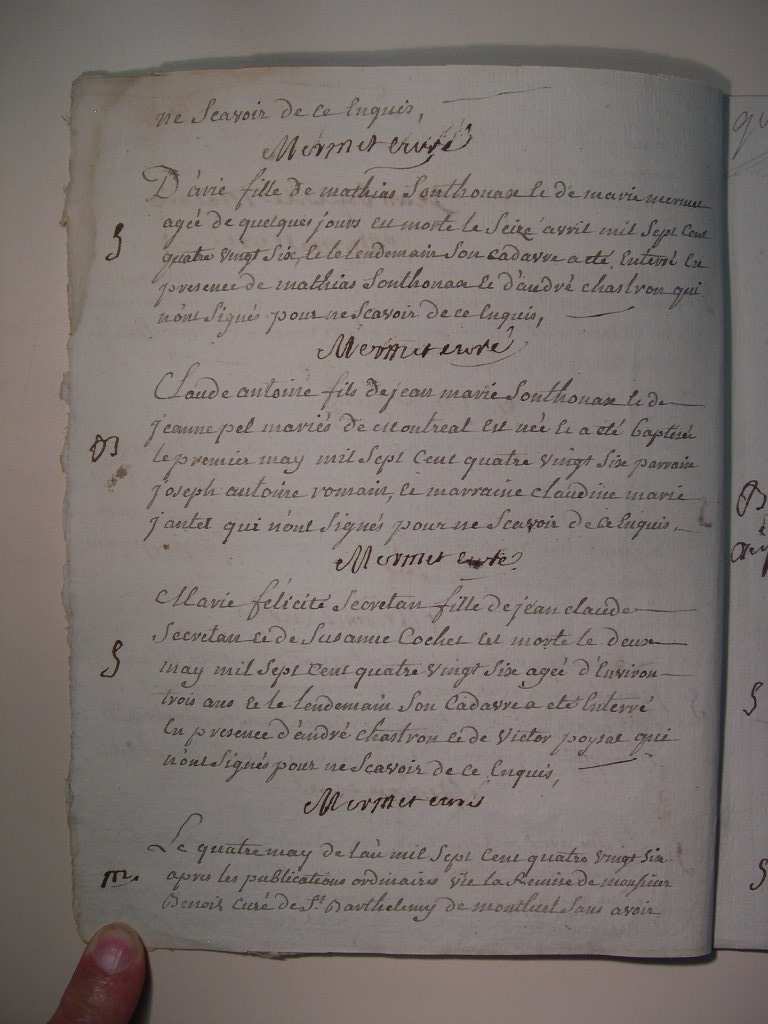 ne Scavoir de ce Enquis,
Mermet curé
D'arie fille de mathias Sonthonax et de marie mermet
S
ageé de quelques jours est morte le Seize avril mil Sept Cent
quatre vingt Six, et le lendemain Son cadavre a eté Enterré En
presence de mathias Sonthonax et d'andré chastron qui
n'ont Signés pour ne Scavoir de ce Enquis,
Mermet curé
Claude antoine fils de jean marie Sonthonax et de
jeanne pel mariés de Montreal Est née et a eté baptisé
B
le premier may mil Sept Cent quatre vingt Six parrain
joseph antoine romain, et marraine claudine marie
jantet qui n'ont Signés pour ne Scavoir de ce Enquis.
Mermet curé
Marie félicité Secretan fille de jean claude
Secretan et de Susanne Cochet est morte le deux
S
may mil Sept Cent quatre vingt Six ageé d'Environ
trois ans et le lendemain Son Cadavre a eté Enterré
En presence d'andré chastron et de Victor poysat qui
n'ont Signés pour ne Scavoir de ce Enquis,
Mermet curé
Le quatre may de l'an mil Sept Cent quatre vingt Six
m.
apres les publications ordinaires Vüe la Remise de monsieur
Benoit Curé de St Barthelemy de montluel Sans avoir